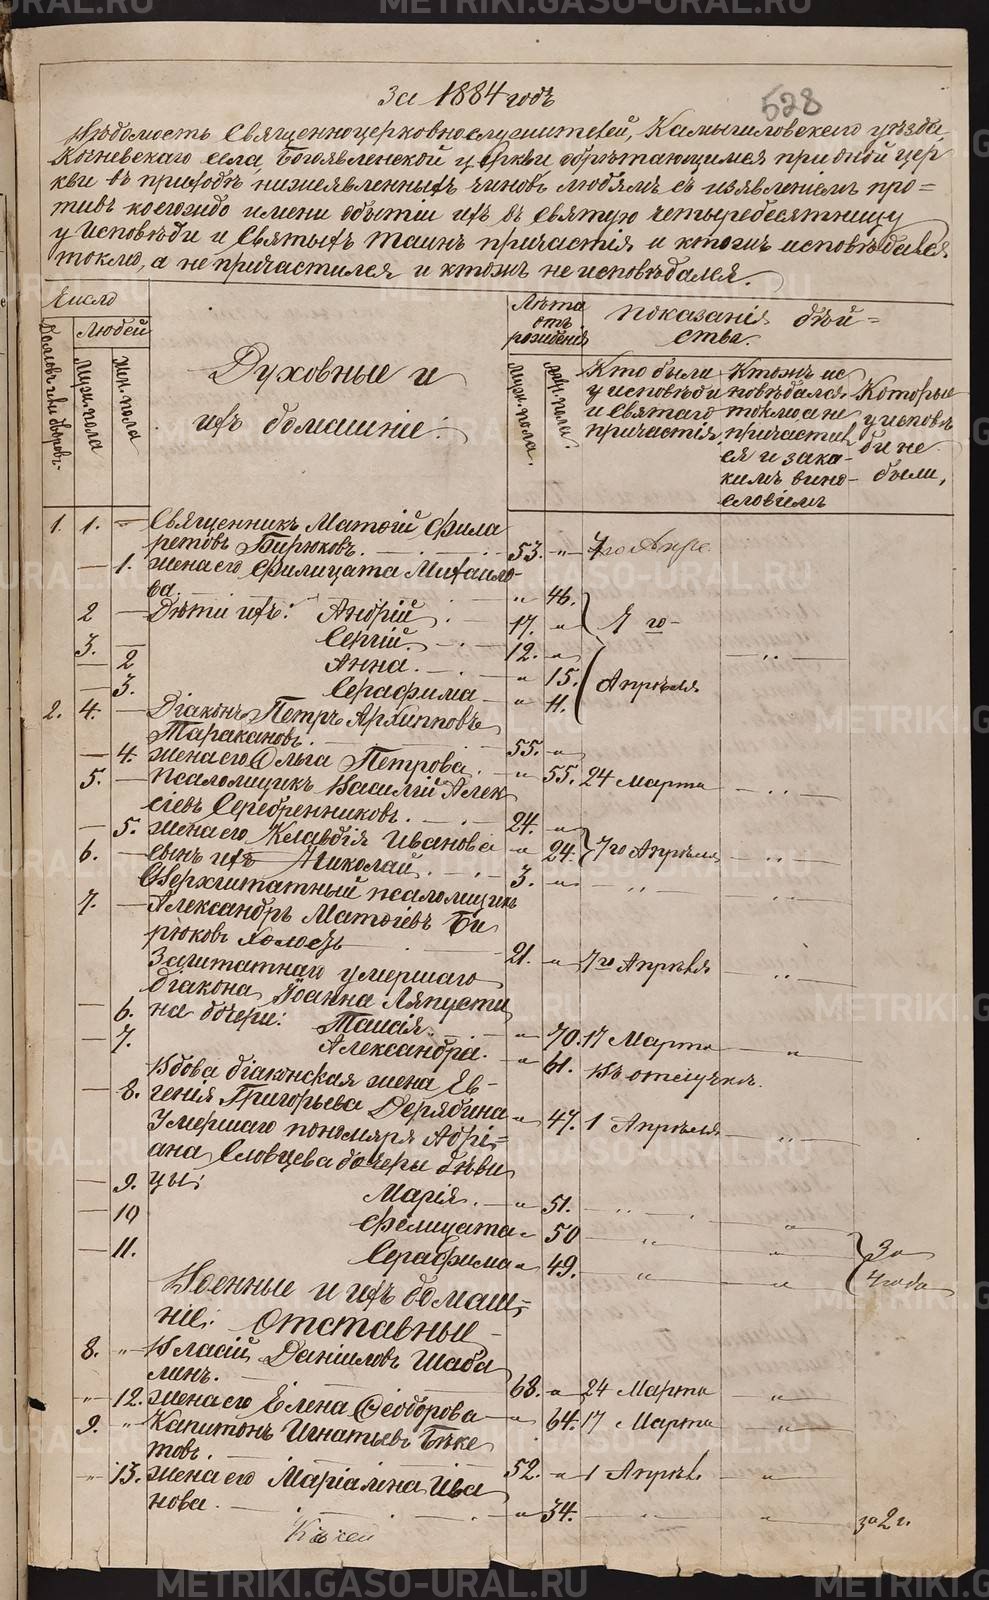 за 1884 годъ
528
Вѣдомость Священноцерковнослужителей, Камышловскаго уѣзда
Кочневскаго села, Богоявленской церкви обрѣтающимся при оной цер
кви въ приходѣ нижеявленныхъ чиновъ людямъ съ изъявленіемъ про=
тивъ коегождо имени бытіи ихъ въ Святую четыредесятницу
у Исповѣди и Святыхъ таинъ причастія и ктоже исповѣдался
токмо, а не причастился и ктожъ не исповѣдался.
Число
Людей
Домовъ или дворовъ.
Муж. пола
Жен. пола
Духовные и
ихъ домашніе:
Лѣта
отъ
рожденія
Муж. пола.
Жен. пола.
показанія дѣй=
ства.
Кто были
у исповѣди
и Святаго
причастія
Ктожъ ис
повѣдался
токмо а не
причастил
ся и зака-
кимъ вино-
словіемъ
Которые
у исповѣ
ди не
были,
1. 1. — Священникъ Матѳій Фила
ретовъ Бирюковъ. 53. „ 7го Апре.
— 1. жена его Филицата Михаило-
ва. „ 46.
2 — Дѣти ихъ: Андрій 17. „ 7 го-
3. — Сергій. 12. „ — „ —
— 2 Анна. „ 15. Апрѣля
— 3. Серафима „ 11.
2. 4. — Діаконъ Петръ Архипповъ
Таракановъ. 55. „
— 4. жена его Ольга Петрова. „ 55. 24 Марта — „ —
5. — псаломщикъ Василій Алек
сіевъ Серебренниковъ. 24. „
— 5. жена его Клавдія Иванова „ 24. 7го Апрѣля — „ —
6. — сынъ ихъ Николай. 3. „ — „ — — „ —
Сверхштатный псаломщикъ
7. — Александръ Матѳіевъ Би
рюковъ холостъ 21. „ 7го Апрѣля — „ —
Заштатнаго умершаго
діакона Іоанна Ляпусти
— 6. на дочери: Таисія. „ 70. 17 Марта — „ —
— 7. Александра. „ 61. Въ отлучкѣ.
Вдова діаконская жена Ев-
— 8. генія Григорьева Дерябина „ 47. 1 Апрѣля — „ —
Умершаго пономаря Адрі=
ана Словцева дочери дѣви
— 9. цы: Марія. „ 51. „ „
— 10 Фелицата „ 50 „ „ За
— 11. Серафима „ 49. „ „ 4 года
Военные и ихъ домаш=
ніе: Отставные
8. „ Власій Даніиловъ Шаба
линъ. 68. „ 24 Марта „
„ 12. жена его Елена Ѳеодорова „ 64. 17 Марта „
9. „ Капитонъ Игнатьевъ Бѣке
товъ. 52. „ 1 Апрѣл „
„ 13. жена его Ива
нова. „ 34. „ „ за 2 г.
METRIKI.GASO-URAL.RU